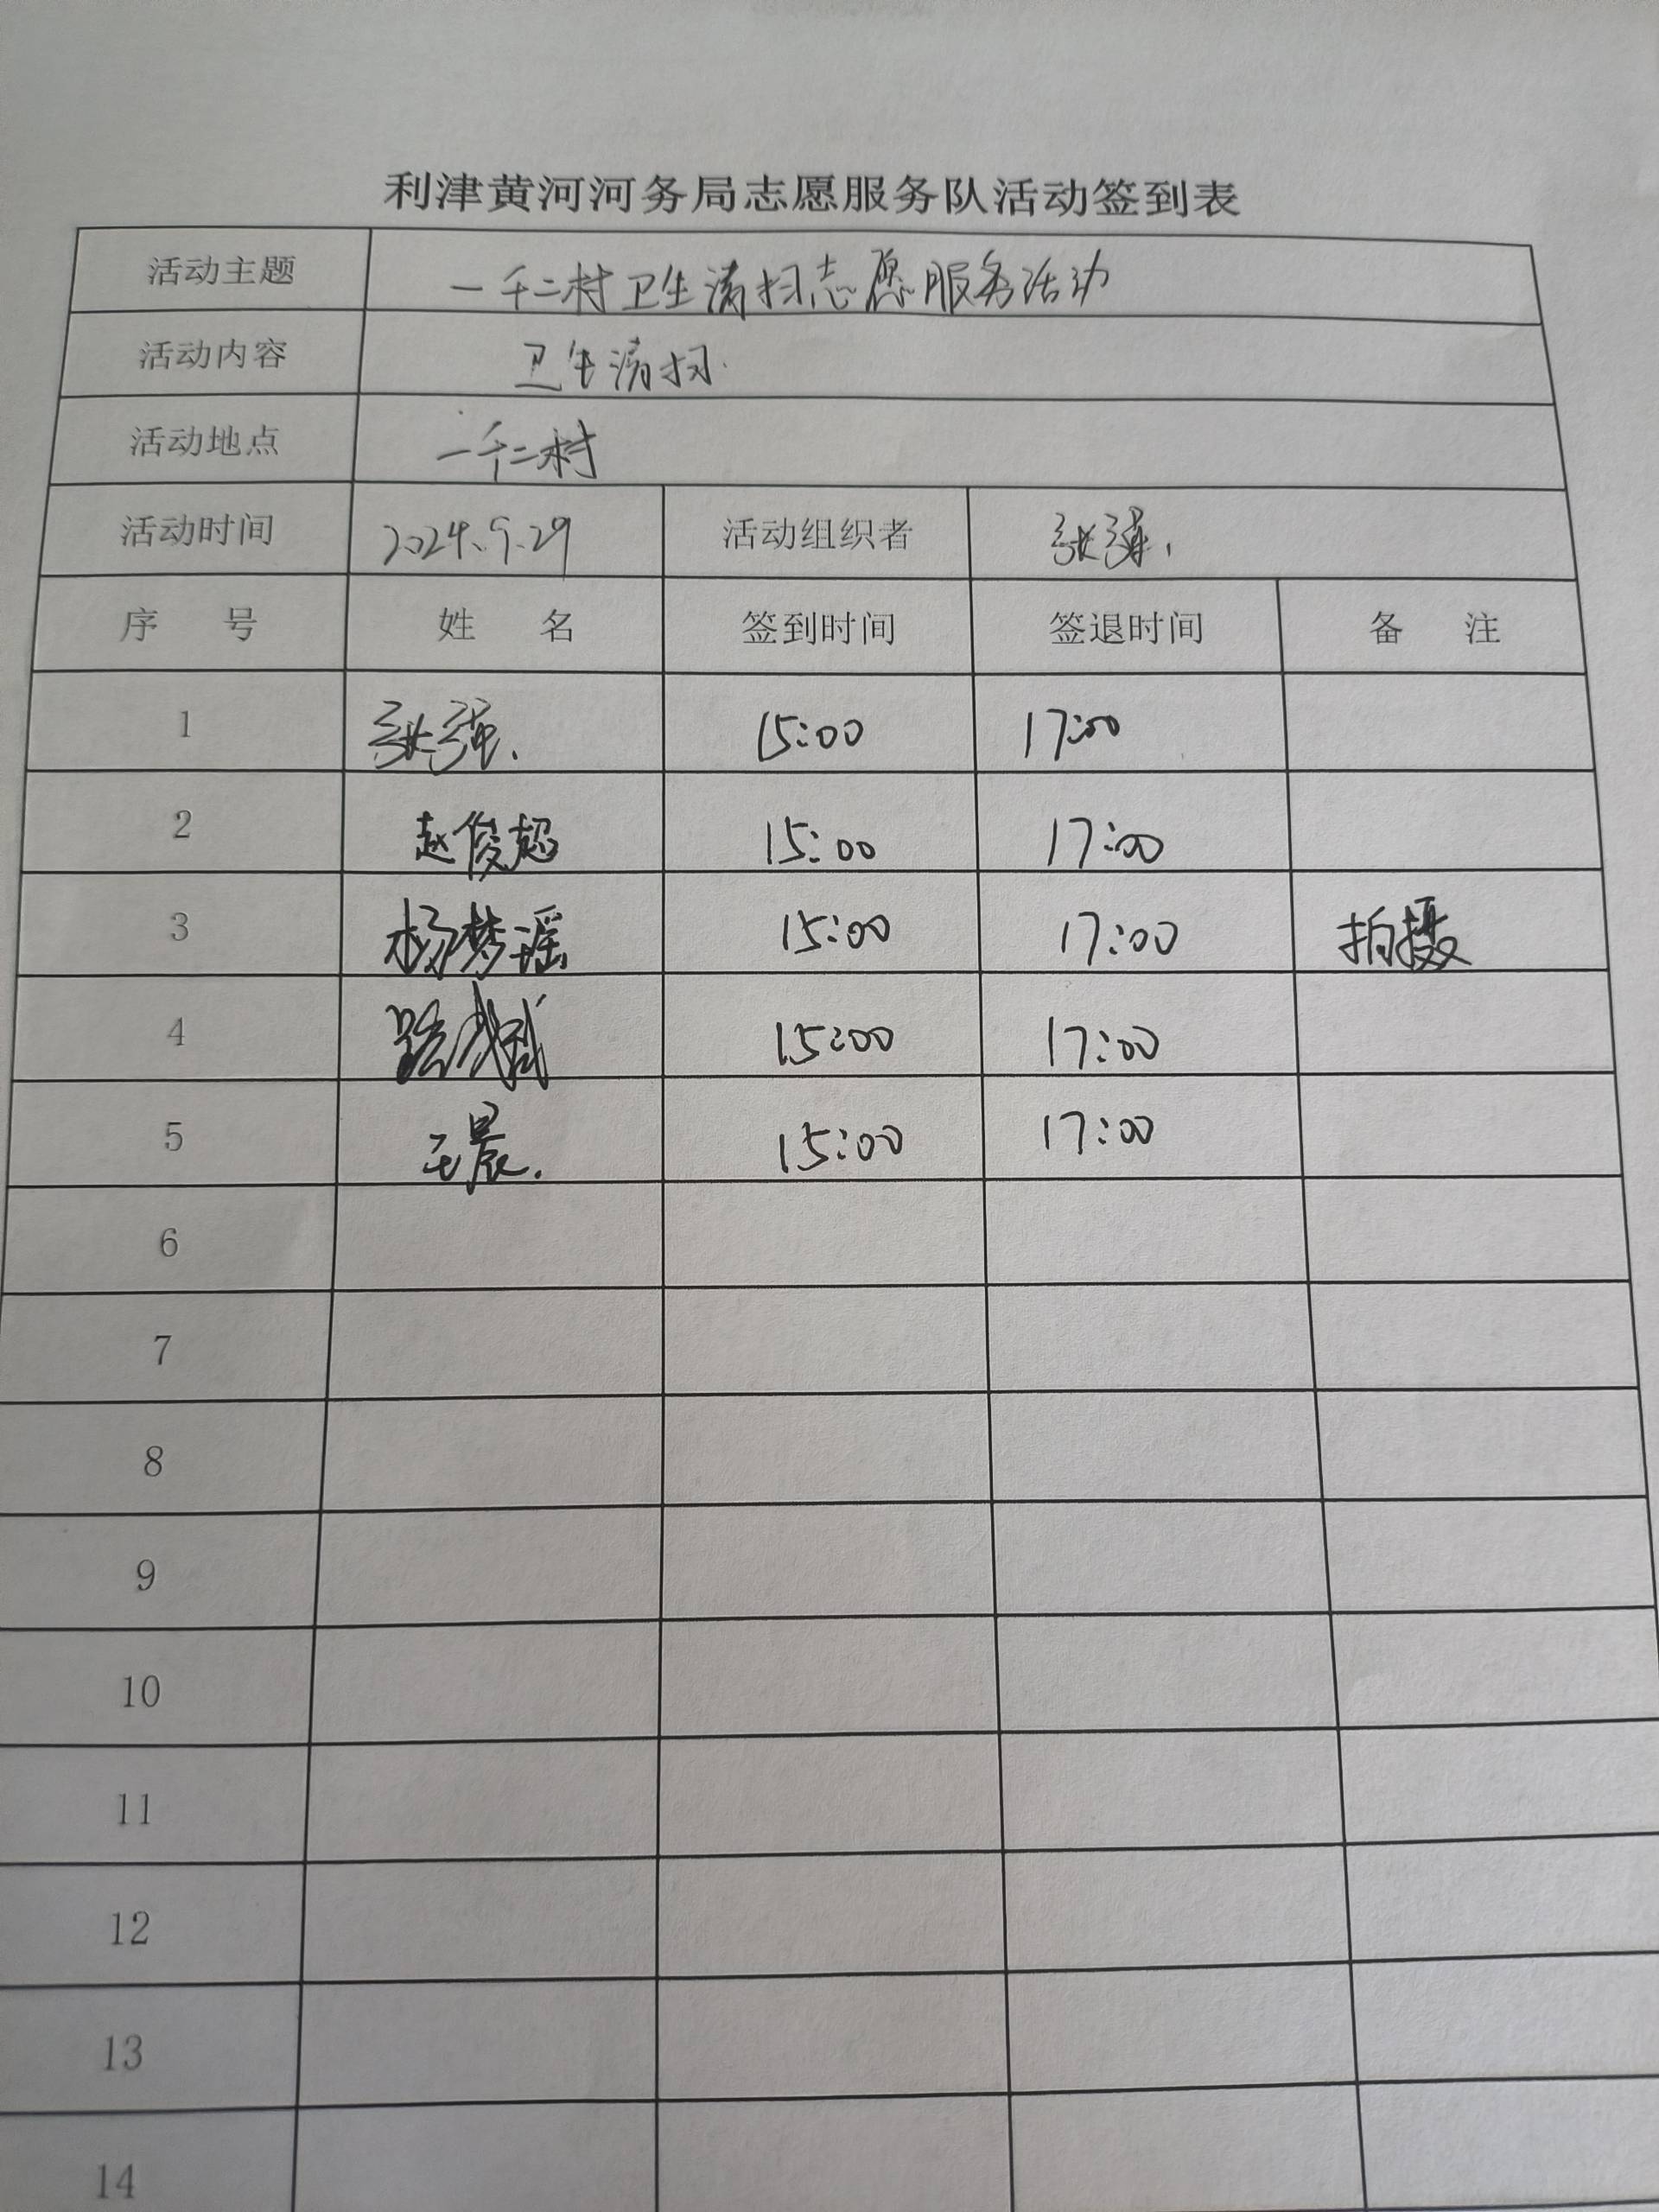 利津黄河河务局志愿服务队活动签到表
活动主题 一千二村卫生清扫志愿服务活动
活动内容 卫生清扫.
活动地点 一千二村
活动时间 2024.9.29 活动组织者 张强.
序 号 姓 名 签到时间 签退时间 备 注
1 张强. 15:00 17:00
2 赵俊超 15:00 17:00
3 杨梦瑶 15:00 17:00 拍摄
4 15:00 17:00
5 王晨. 15:00 17:00
6
7
8
9
10
11
12
13
14